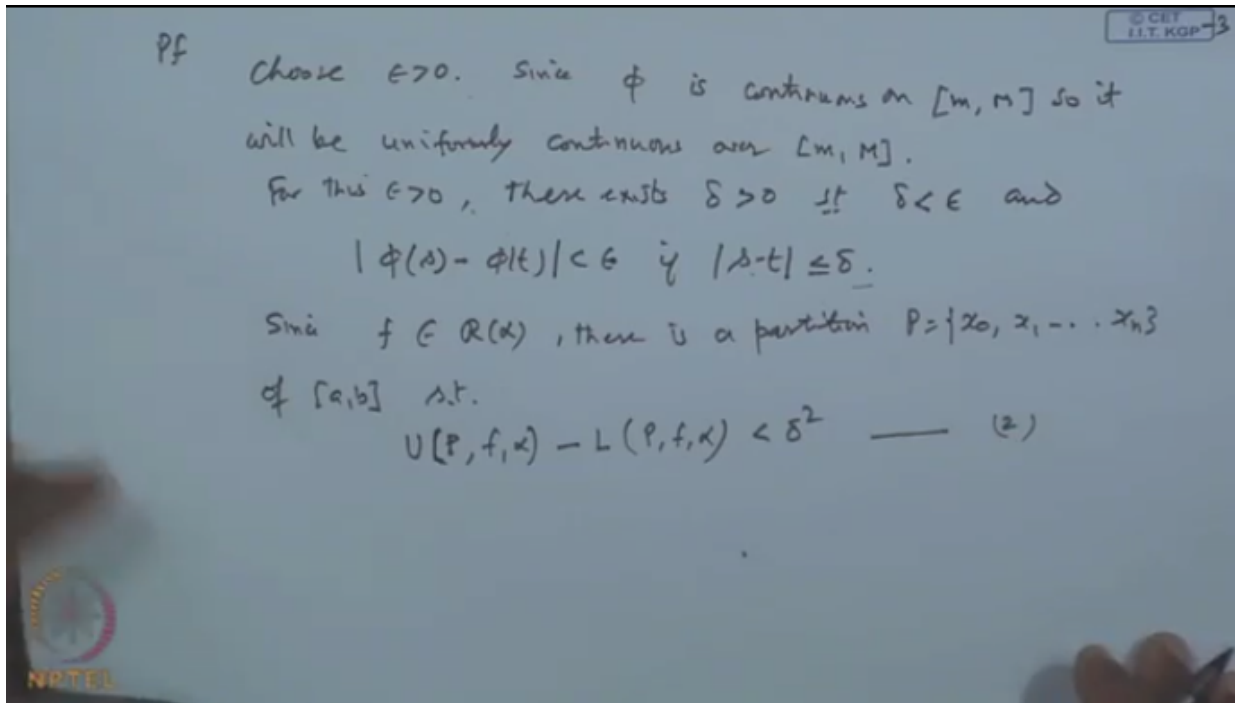 © CET
I.I.T. KGP -3
Pf
Choose ϵ>0. Since ϕ is continuous on [m, M] so it
will be uniformly continuous over [m, M].
For this ϵ>0, there exists δ>0 st δ<ϵ and
|ϕ(s) - ϕ(t)| < ϵ if |s-t| ≤ δ.
Since f ∈ R(α), there is a partition P={x₀, x₁ -... xₙ}
of [a,b] s.t.
U[P, f, α) - L(P, f, α) < δ² —— (2)
NPTEL